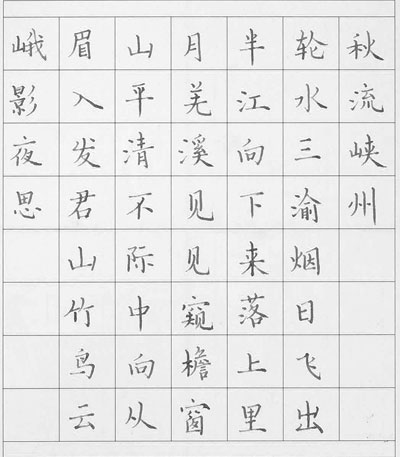 峨眉山月半轮秋
影入平羌江水流
夜发清溪向三峡
思君不见下渝州
山际见来烟
竹中窥落日
鸟向檐上飞
云从窗里出